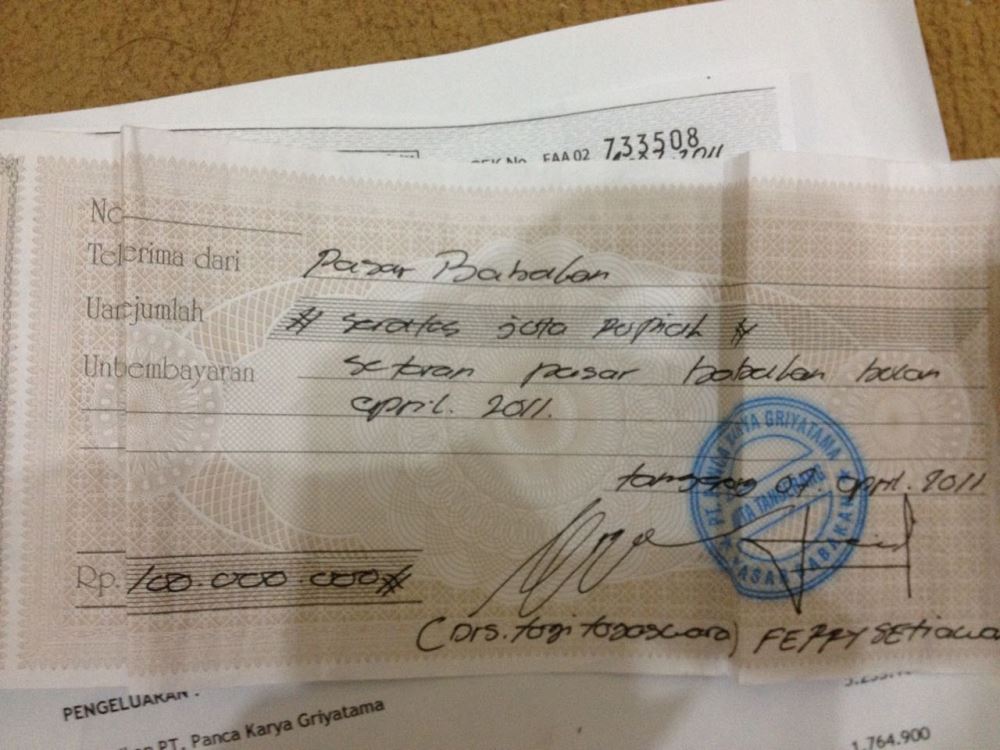 CEK No. EAA 02 733508
No
Telerima dari Pasar Babakan
Uanjumlah # seratus juta rupiah #
Unbembayaran setoran pasar babakan bulan
april. 2011.
tangerang 07 april. 2011
PT. PANCA KARYA GRIYATAMA
KOTA TANGERANG
PASAR BABAKAN
Rp. 100.000.000 #
(Drs. togi togaswara) FERRY Setiawa
PENGELUARAN :
PT. Panca Karya Griyatama
1.764.900